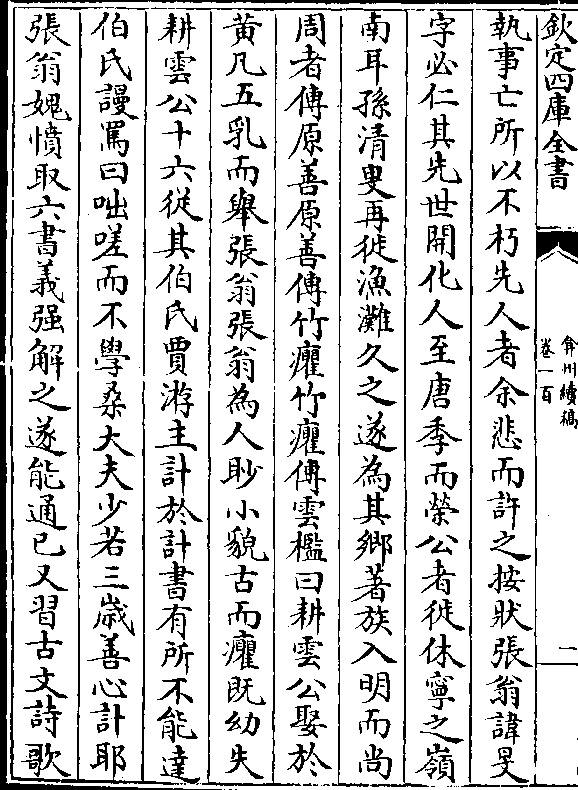 欽定四庫全書
弇州續稿
卷一百
一
執事亡所以不朽先人者余悲而許之按狀張翁諱旻
字必仁其先世開化人至唐季而榮公者徙休寧之嶺
南耳孫清叟再徙漁灘久之遂為其鄉著族入明而尚
周者傳原善原善傳竹癯竹癯傳雲檻曰耕雲公娶於
黄凡五乳而舉張翁張翁為人眇小貌古而癯既幼失
耕雲公十六從其伯氏賈游主計於計書有所不能達
伯氏謾罵曰咄嗟而不學桑大夫少若三歲善心計耶
張翁媿憤取六書義强解之遂能通已又習古文詩歌